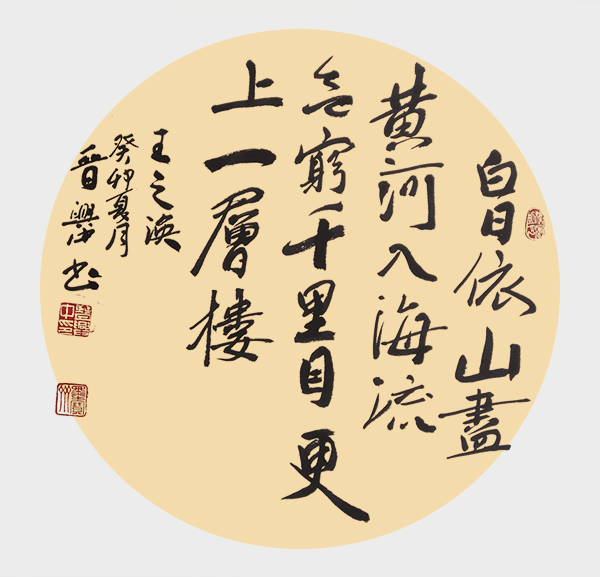 白日依山盡
黄河入海流
欲窮千里目更
上一層樓
王之涣
癸卯夏月
晋興中书